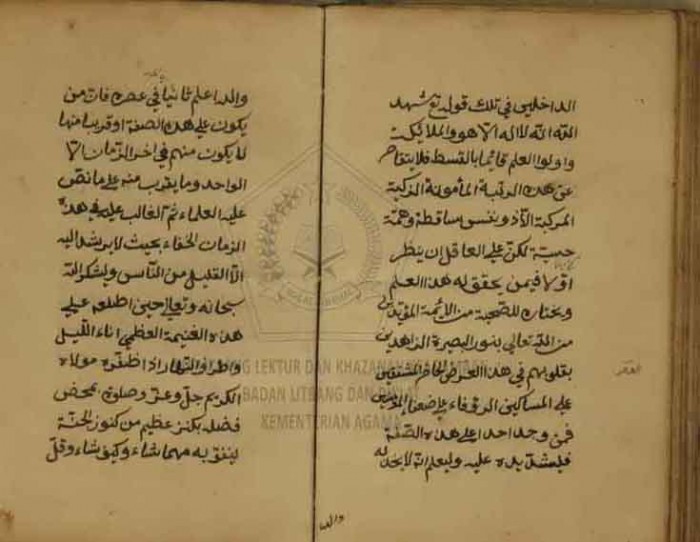 الداخلين في تلك قوله تع شهد
الله انه لا اله الا هو والملايكت
واولوا العلم قايما بالقسط فلا يتقاصر
عن هذه الرتبة المأمونة الزكية
المركبة الا ذو نفس ساقطة وهمة
خسيسة لكن على العاقل ان ينظر
اولا فيمن يحقق له هذا العلم
ويختاره للصحبة من الايمة المؤيدين
من الله تعالى بنور البصيرة الزاهدين
بقلوبهم في هذا العرض الحاضر المشفقين
على المساكين الرؤفاء على ضعفاء المؤمنين
فمن وجد احدا على هذه الصفة
فليشد يده عليه وليعلم انه لا يجد له
والله
والله اعلم ثانيا في عصره فان من
يكون على هذه الصفة او قريبا منها
لا يكون منهم في اخر الزمان الا
الواحد وما يقرب منه على ما نص
عليه العلماء ثم الغالب عليه في هذه
الزمان الخفاء بحيث لا يرشد اليه
الا القليل من الناس وليشكر الله
سبحانه وتعالى حين اطلعه على
هذه الغنيمة العظمى اناء الليل
واطراف النهار اذ اظفره مولاه
الكريم جل وعز وصلوته بمحض
فضله بكنز عظيم من كنوز الجنة
لينفق به مهما شاء وكيف شاء وقل
LITBANG LEKTUR DAN KHAZANAH
BADAN LITBANG DAN DIKLAT
KEMENTERIAN AGAMA